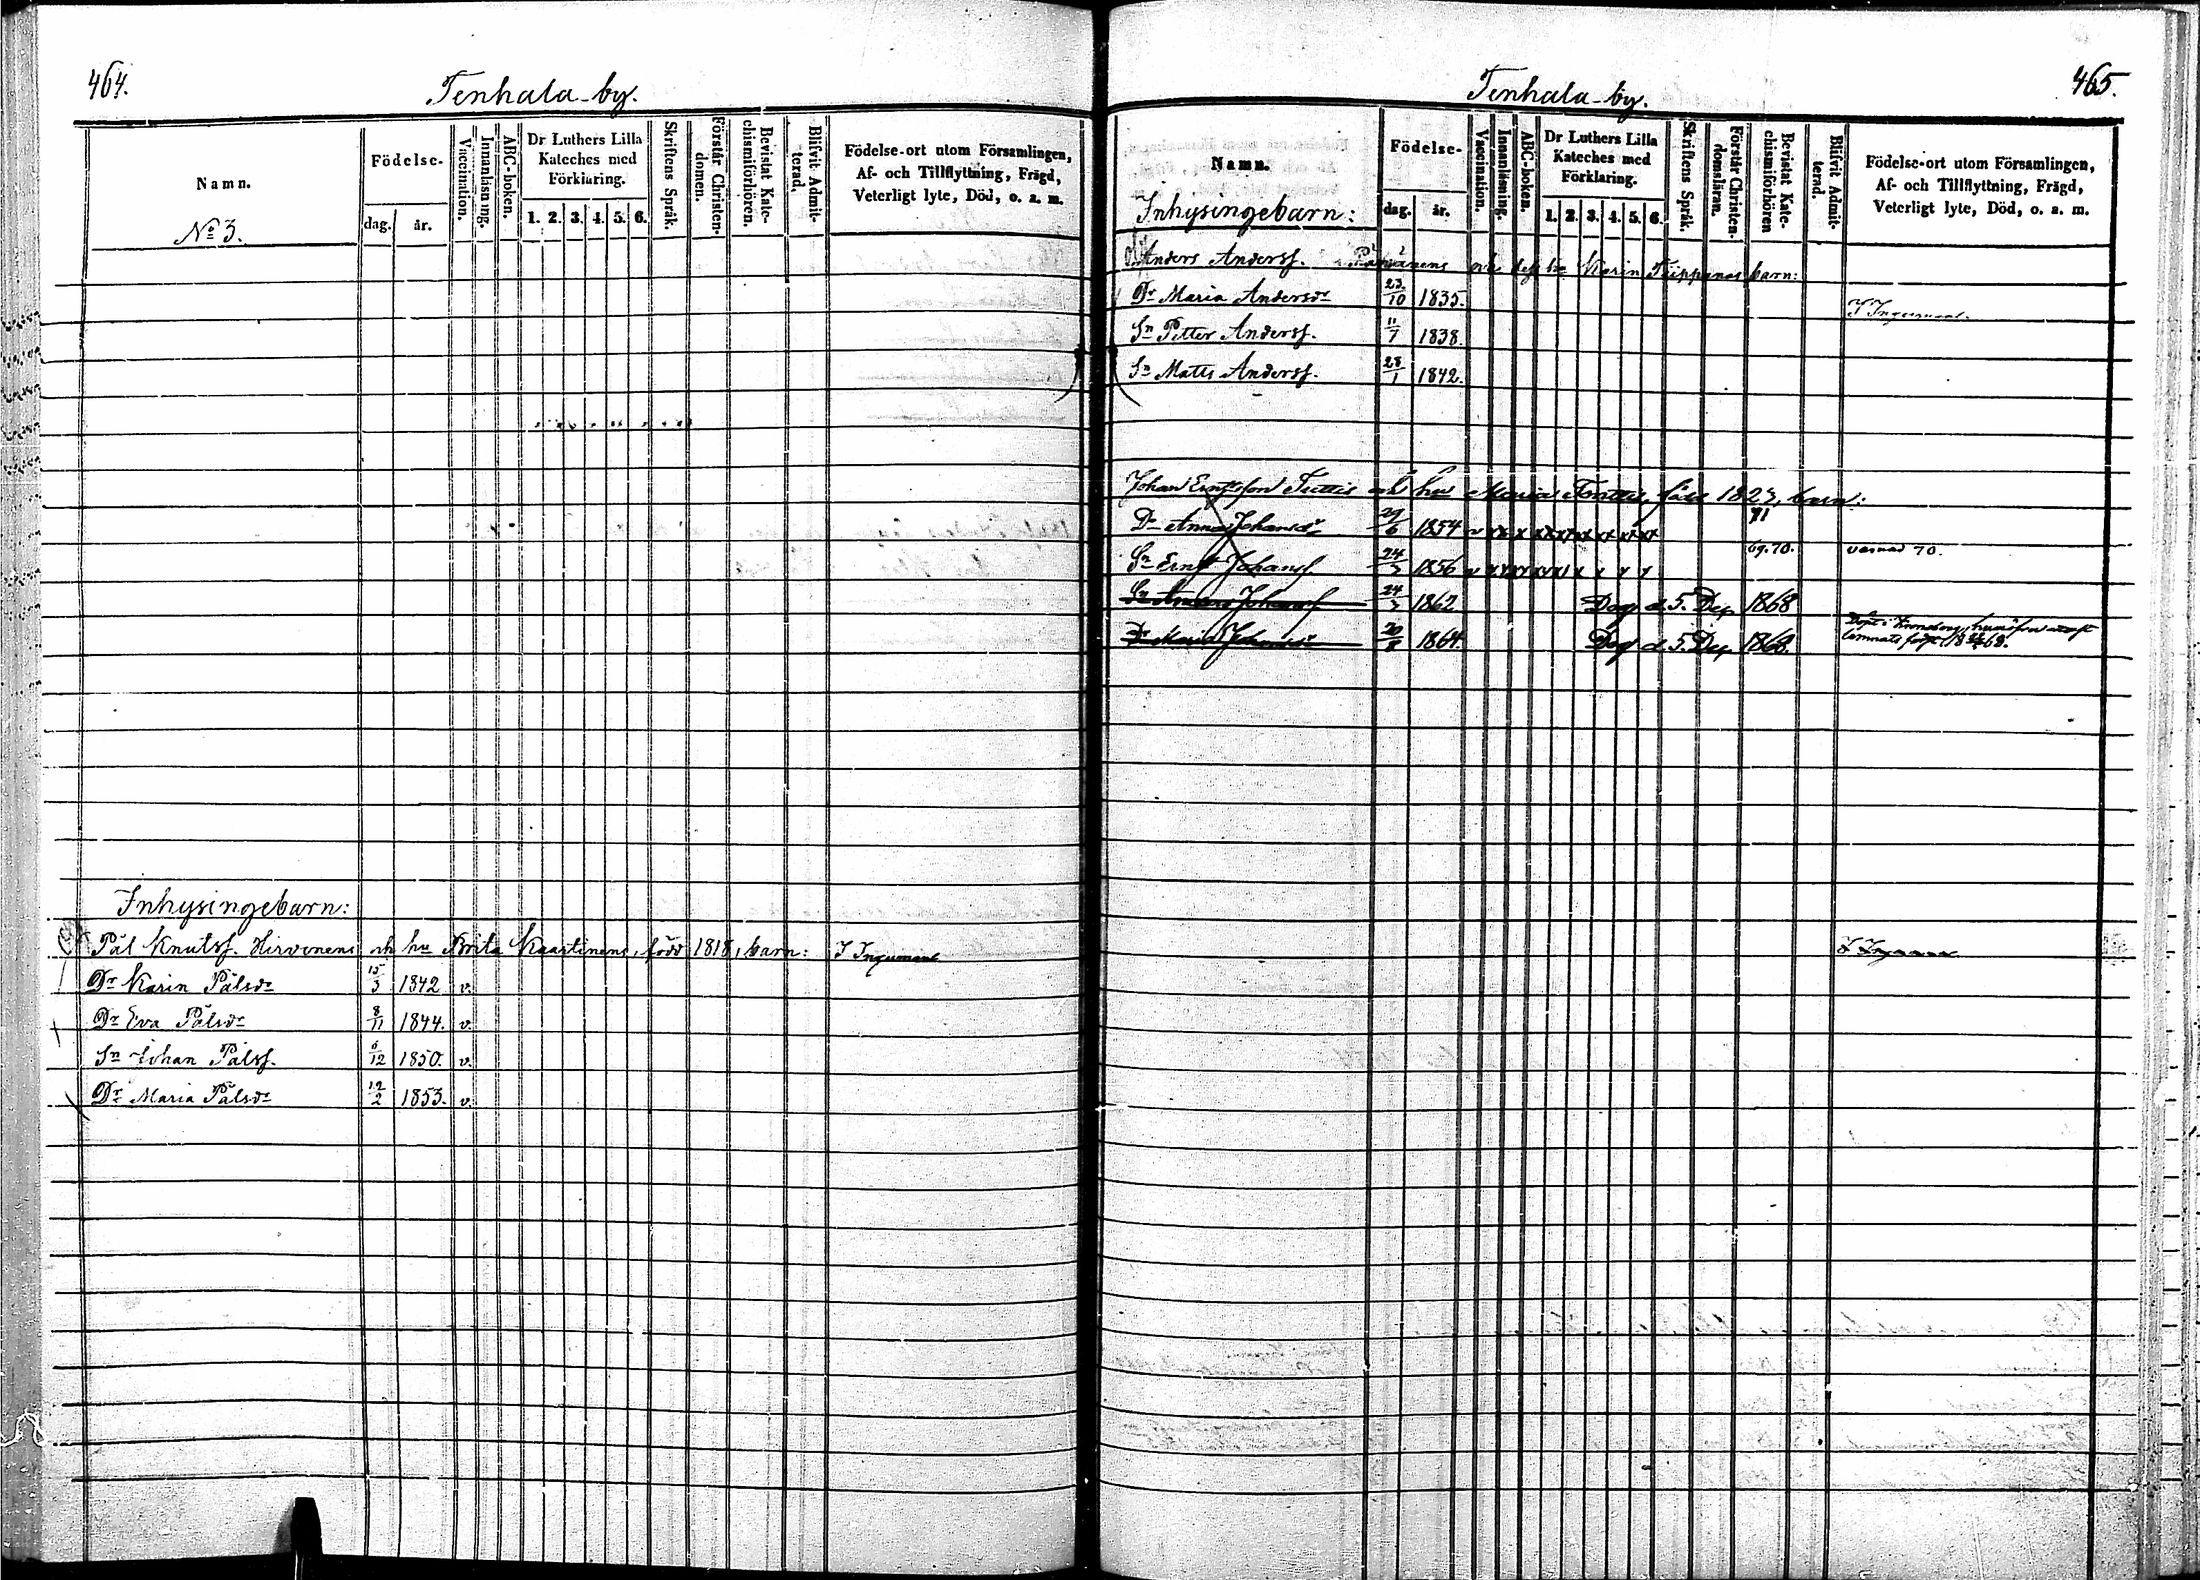 464.
Tenhala-by.
Namn.
No 3.
Födelse-
dag.
år.
Vaccination.
Innanläsning.
ABC-boken.
Dr Luthers Lilla
Kateches med
Förklaring.
1. 2. 3. 4. 5. 6.
Skriftens Språk.
Förstår Christen-
domen.
Bevistat Kate-
chismiförhören.
Blifvit Admit-
terad.
Födelse-ort utom Församlingen,
Af- och Tillflyttning, Frägd,
Veterligt lyte, Död, o. s. m.
Inhysingebarn:
Pål Knutsf. Hirvonens och hu Brita Kaartinens, född 1818, barn: I Ingermanl.
Dr Karin Pålsdr 15/3 1842 v.
Dr Eva Pålsdr 8/11 1844. v.
Sn Johan Pålsf. 6/12 1850. v.
Dr Maria Pålsdr 12/2 1853. v.
465.
Tenhala-by.
Namn.
Inhysingebarn:
Födelse-
dag.
år.
Vaccination.
Innanläsning.
ABC-boken.
Dr Luthers Lilla
Kateches med
Förklaring.
1. 2. 3. 4. 5. 6.
Skriftens Språk.
Förstår Christen-
domsläran.
Bevistat Kate-
chismiförhören
Blifvit Admit-
terad.
Födelse-ort utom Församlingen,
Af- och Tillflyttning, Frägd,
Veterligt lyte, Död, o. s. m.
Anders Andersf. och dess hu Karin barn:
Dr Maria Andersdr 23/10 1835. I Ingermanl.
Sn Petter Andersf. 11/7 1838.
Sn Matts Andersf. 28/1 1842.
Johan Ernstsson Tuttis och hu Maria född 1827, barn:
Dr Anna Johansdr 29/6 1854 v 71
Sn Ernst Johansf. 24/7 1856 v 69. 70. 70.
Sn Johansf 24/7 1862 Dog d. 5. Dec 1868
Dr Maria Johansdr 20/8 1864. Dog d. 5. Dec 1868.
I Ingerman